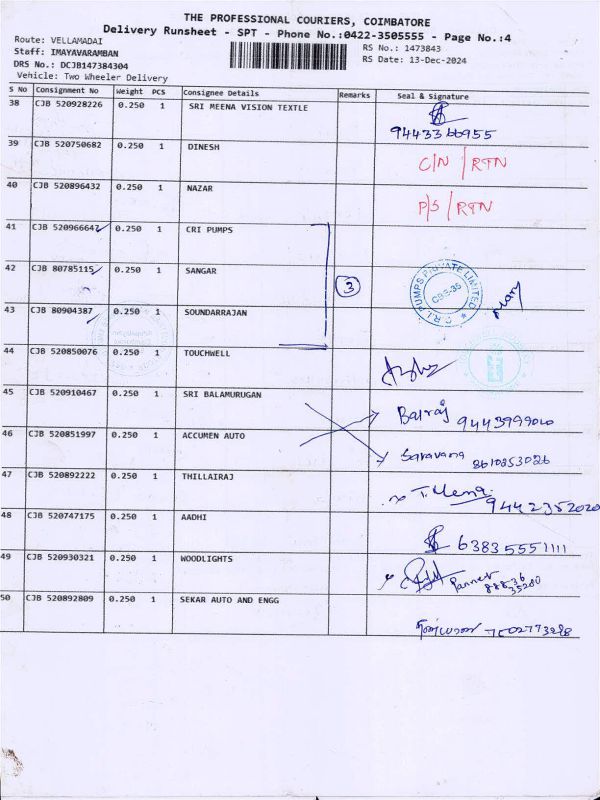 THE PROFESSIONAL COURIERS, COIMBATORE
Delivery Runsheet - SPT - Phone No.:0422-3505555 - Page No.:4
Route: VELLAMADAI
Staff: IMAYAVARAMBAN
DRS No.: DCJB147384304
Vehicle: Two Wheeler Delivery
RS No.: 1473843
RS Date: 13-Dec-2024
S No Consignment No Weight PCS Consignee Details Remarks Seal & Signature
38 CJB 520928226 0.250 1 SRI MEENA VISION TEXTLE
9443366955
39 CJB 520750682 0.250 1 DINESH
C/N / RTN
40 CJB 520896432 0.250 1 NAZAR
P/S / RTN
41 CJB 520966647 0.250 1 CRI PUMPS
42 CJB 80785115 0.250 1 SANGAR
3
C.R.I. PUMPS PRIVATE LIMITED
CBE-35
43 CJB 80904387 0.250 1 SOUNDARRAJAN
44 CJB 520850076 0.250 1 TOUCHWELL
45 CJB 520910467 0.250 1 SRI BALAMURUGAN
Balraj
46 CJB 520851997 0.250 1 ACCUMEN AUTO
Saravana 8610253026
47 CJB 520892222 0.250 1 THILLAIRAJ
9442352020
48 CJB 520747175 0.250 1 AADHI
63835551111
49 CJB 520930321 0.250 1 WOODLIGHTS
88836
35200
50 CJB 520892809 0.250 1 SEKAR AUTO AND ENGG